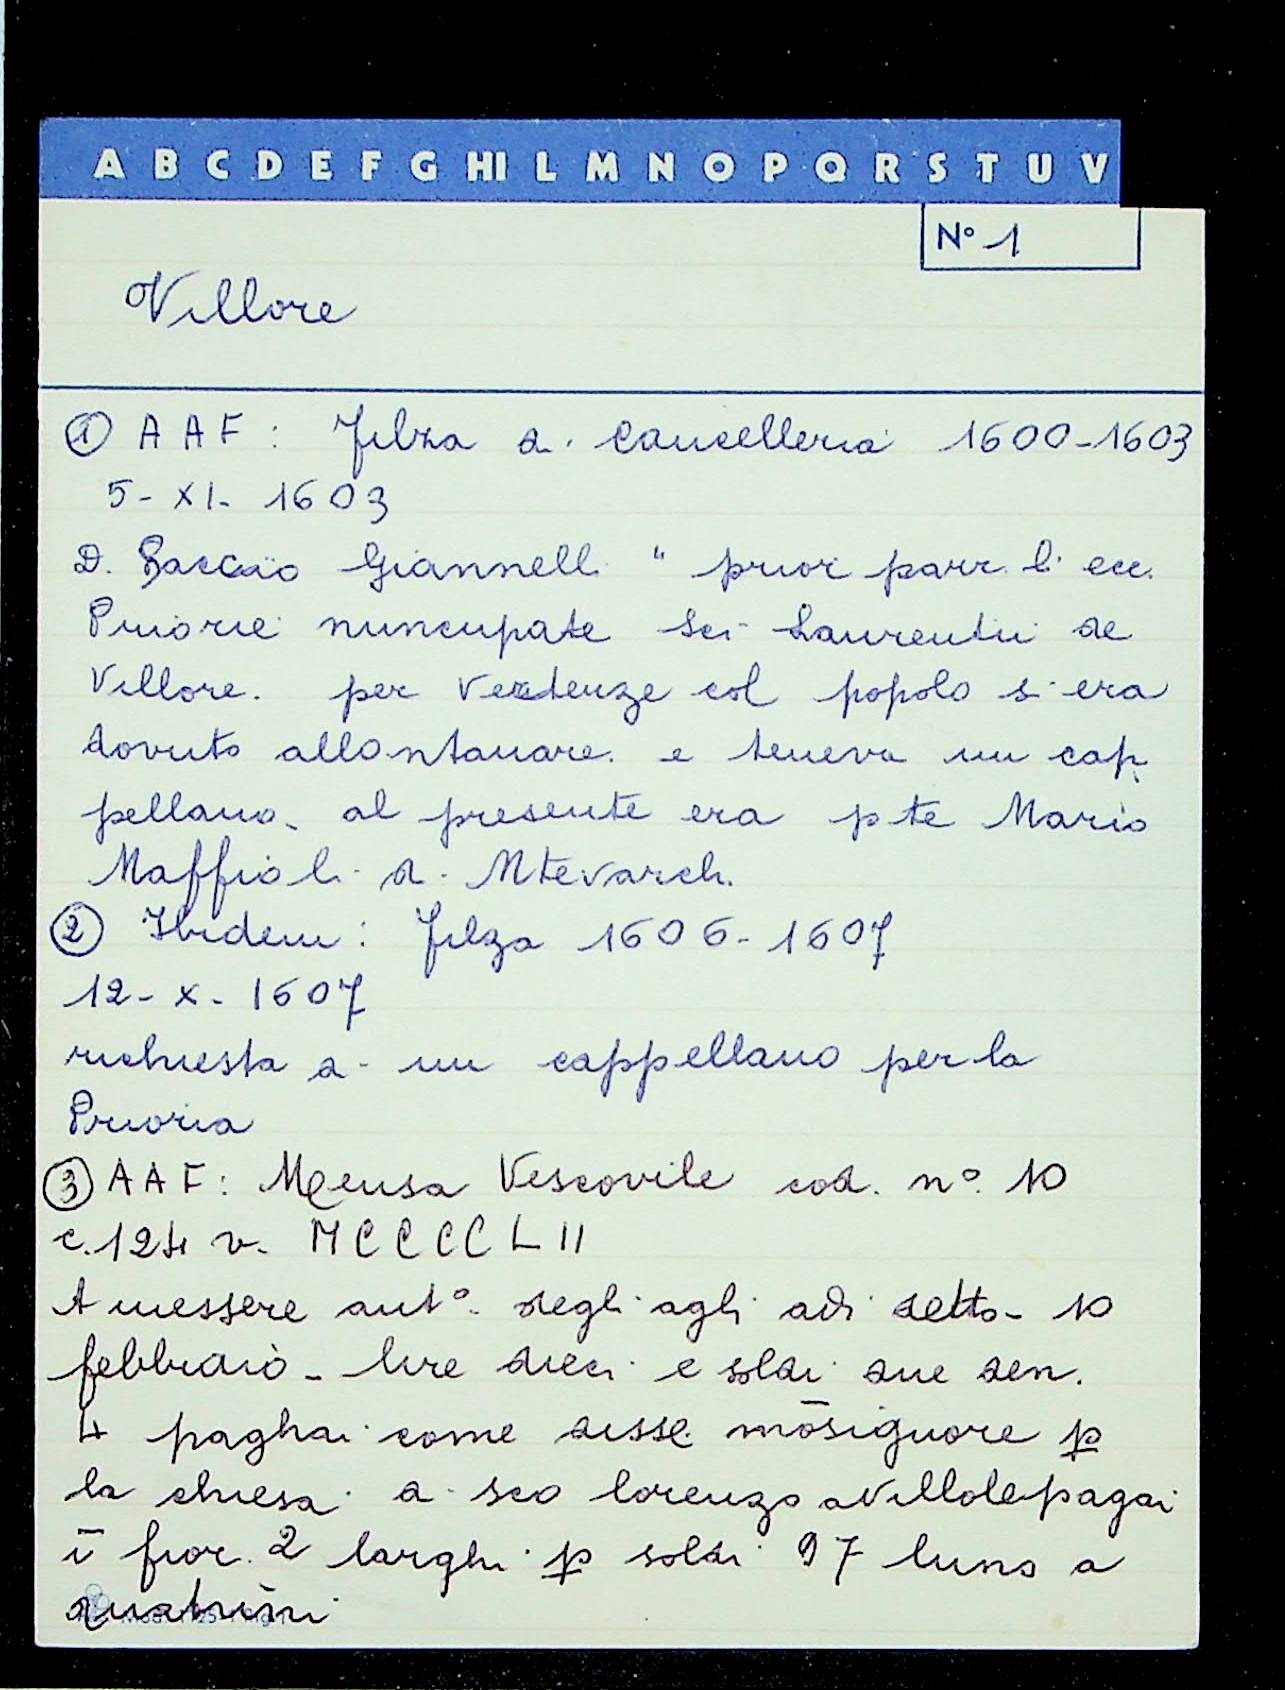 A B C D E F G HI L M N O P Q R S T U V
N° 1
Villore
① AAF: Filza di Cancelleria 1600-1603
5-XI-1603
D. Baccio Giannelli "prior parr.li ecc.
Priorie nuncupate Sci Laurentii de
Villore. per vertenze col popolo si era
dovuto allontanare e teneva un cap
pellano. al presente era pte Mario
Maffioli di Mtevarchi.
② Ibidem: Filza 1606-1607
12-X-1607
richiesta di un cappellano per la
Prioria
③ AAF: Mensa Vescovile cod. n° 10
c.124 v. MCCCCLII
A messere ant° degli agli adi detto-10
febbraio - lire dieci e soldi due den.
4 paghai come disse mōsignore p
la chiesa di sco lorenzo a Villole pagai
ī fior. 2 larghi p soldi 97 luno a
quatrini